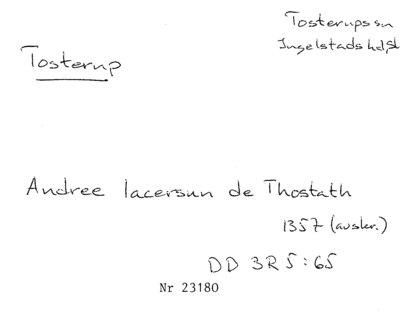 Tosterups sn
Ingelstads hd, Sk
Tosterup
Andree lacersun de Thostath
1357 (avskr.)
DD 3R 5:65
Nr 23180